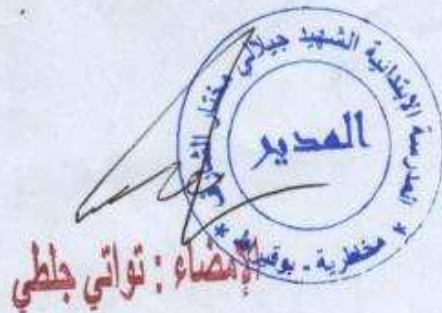 المدرسة الابتدائية الشهيد جيلالي مختار
المدير
* مخطرية - بوقيراط *
الإمضاء : تواتي جلطي